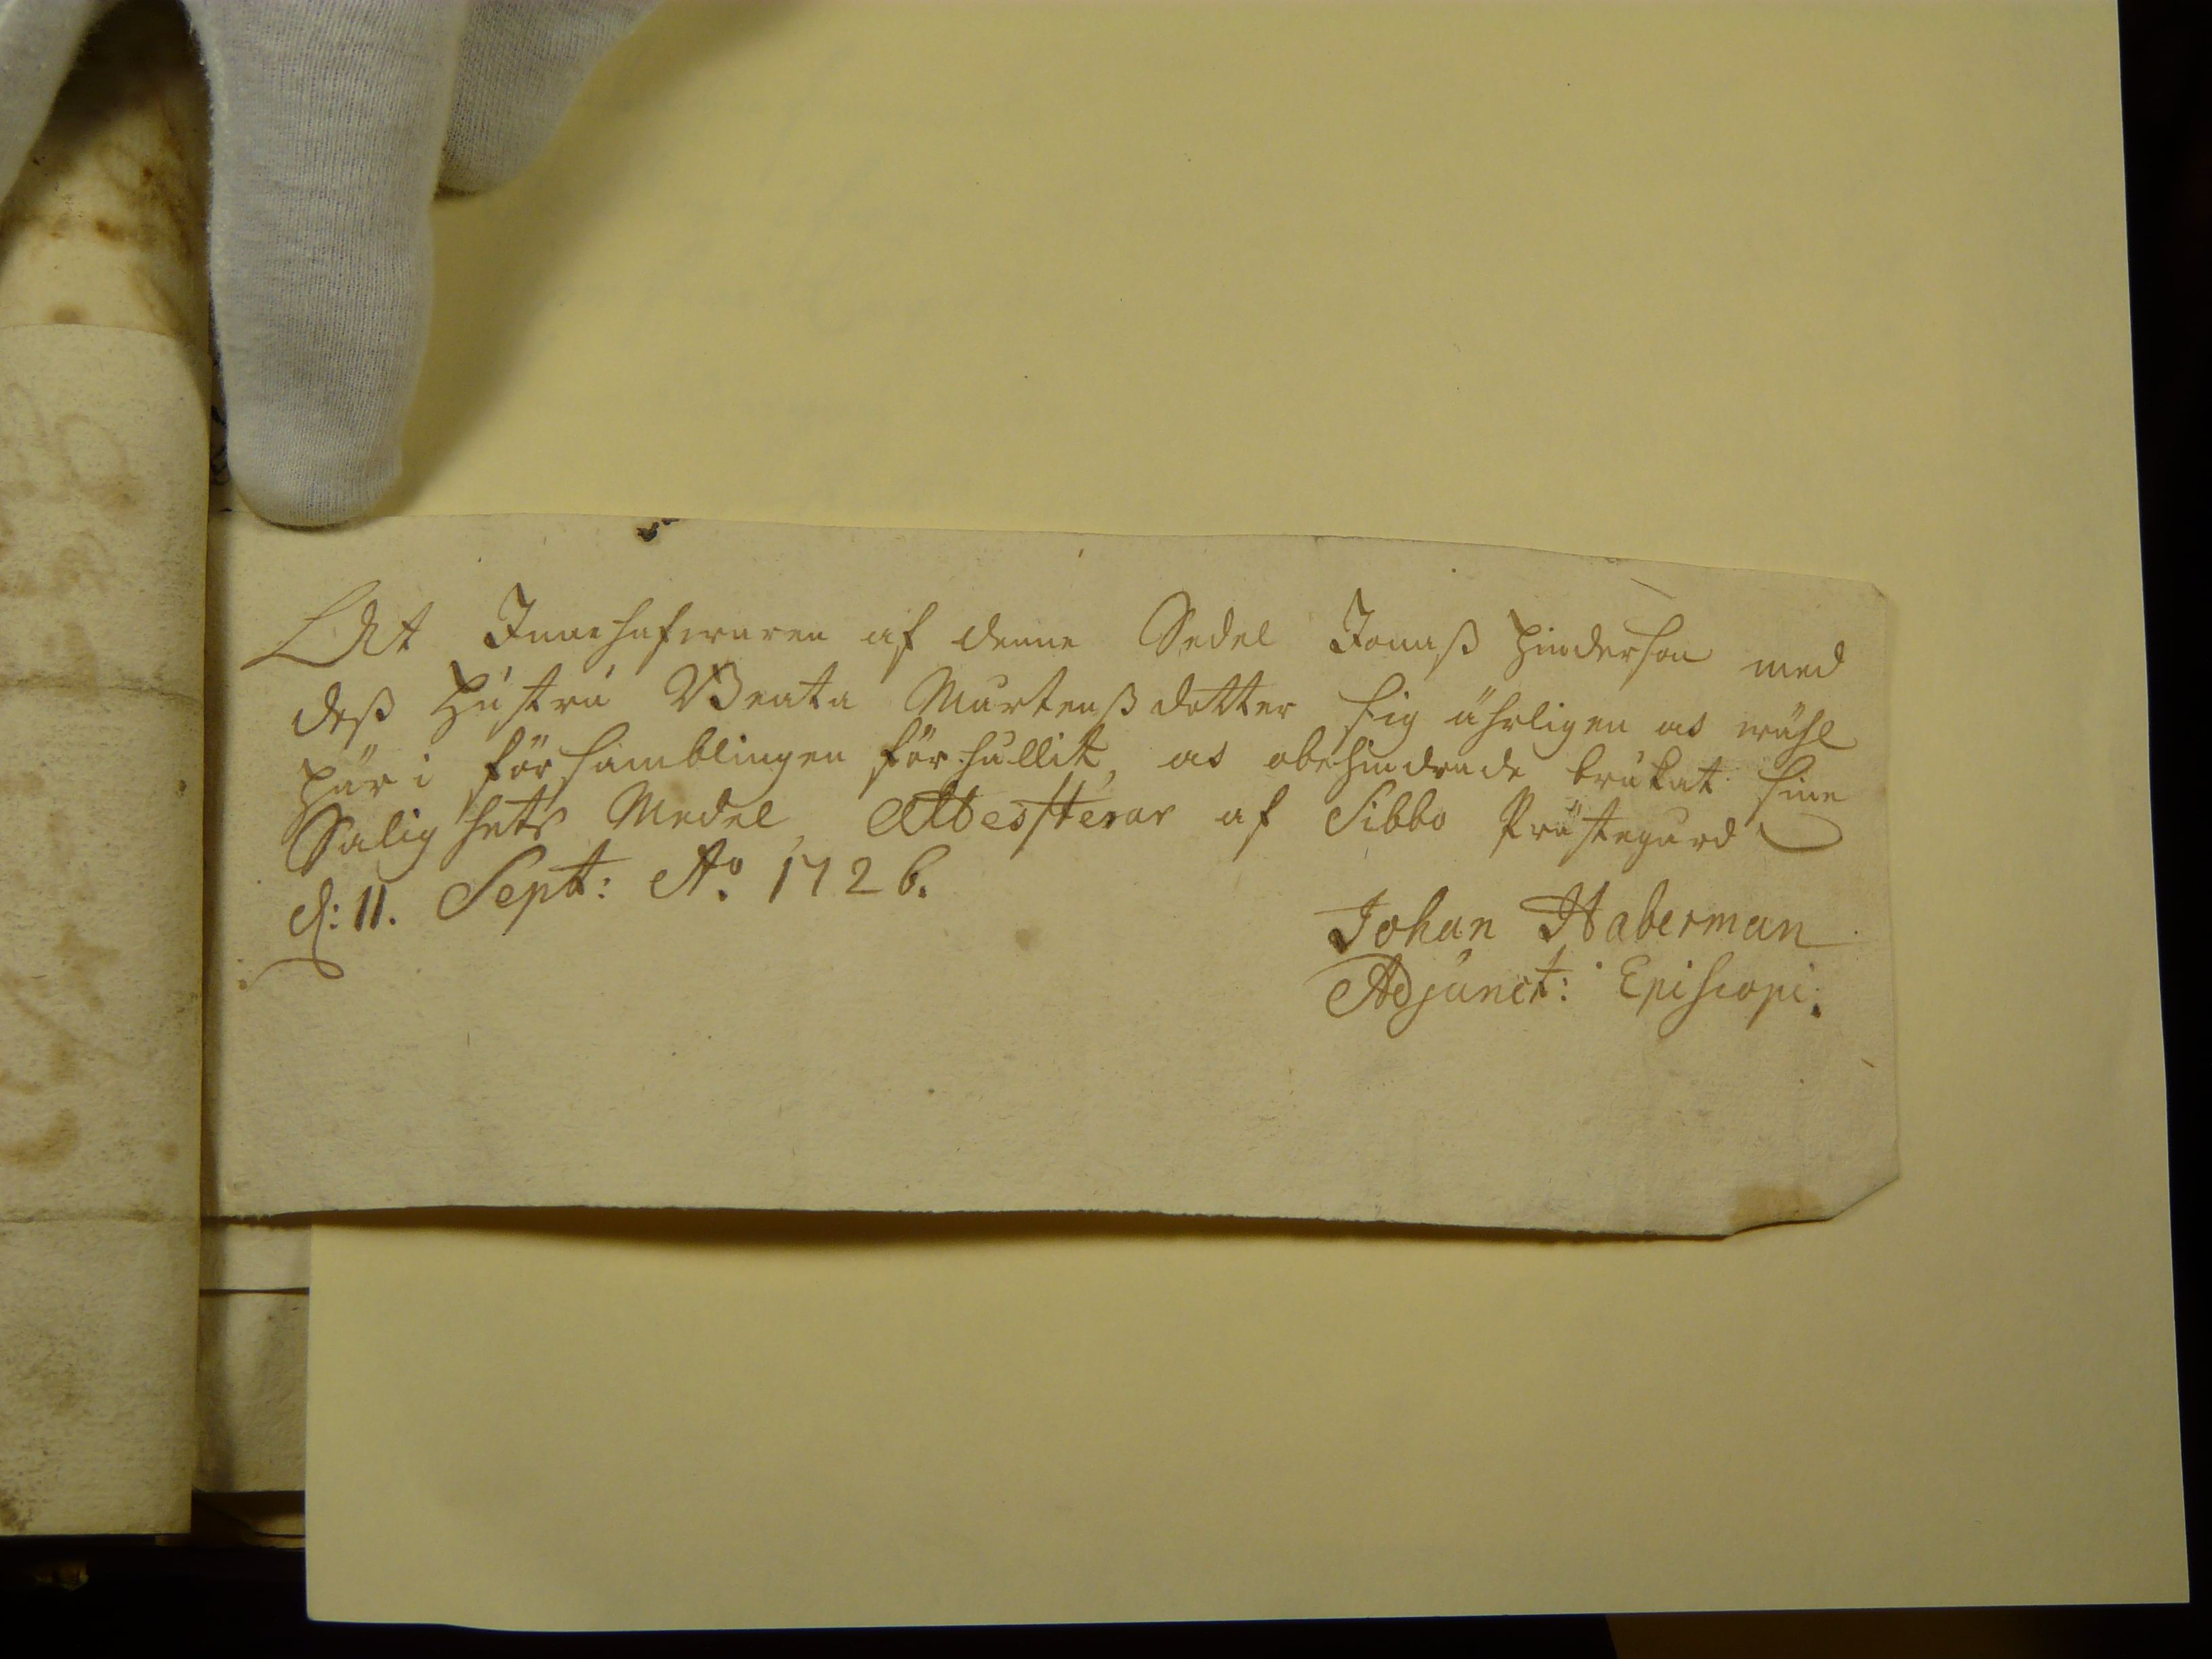 Att Innehafwaren af denne Sedel Jonaß Hinderson med
deß Hústrú Beata Mårtenßdotter sig ährligen as wähl
här i församblingen förhållit, as obehindrade brúkat sine
Salighets Medel, Attesterar af Sibbo Prästegård
d: 11. Sept: Ao. 1726.
Johan Haberman
Adjúnct: Episcopi.